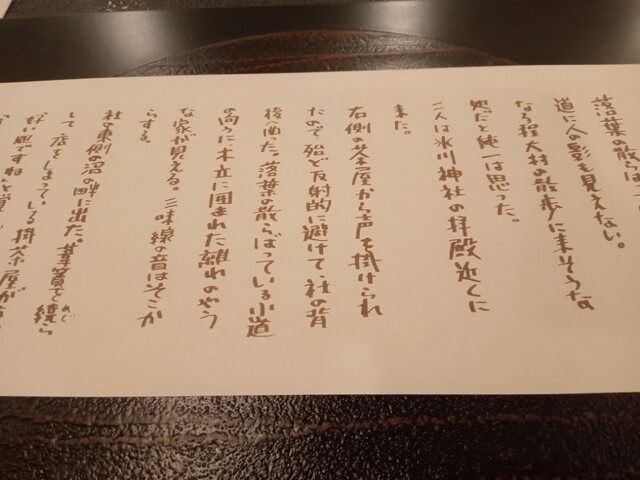 落葉の散らばつ
道に人の影も見えない。
なる程大村の散歩に来そうな
処だと純一は思った。
二人は氷川神社の拝殿近くに
来た。
右側の茶屋から声を掛けられ
たので殆ど反射的に避けて、社の背
後へ廻った。落葉の散らばっている小道
の向うに、木立に囲まれた離れのやう
な家が見える。三味線の音はそこか
らする。
社の東側の沼の畔に出た。葦簀を繞ら
して店をしまっている掛茶屋が
好い処ですねと覚